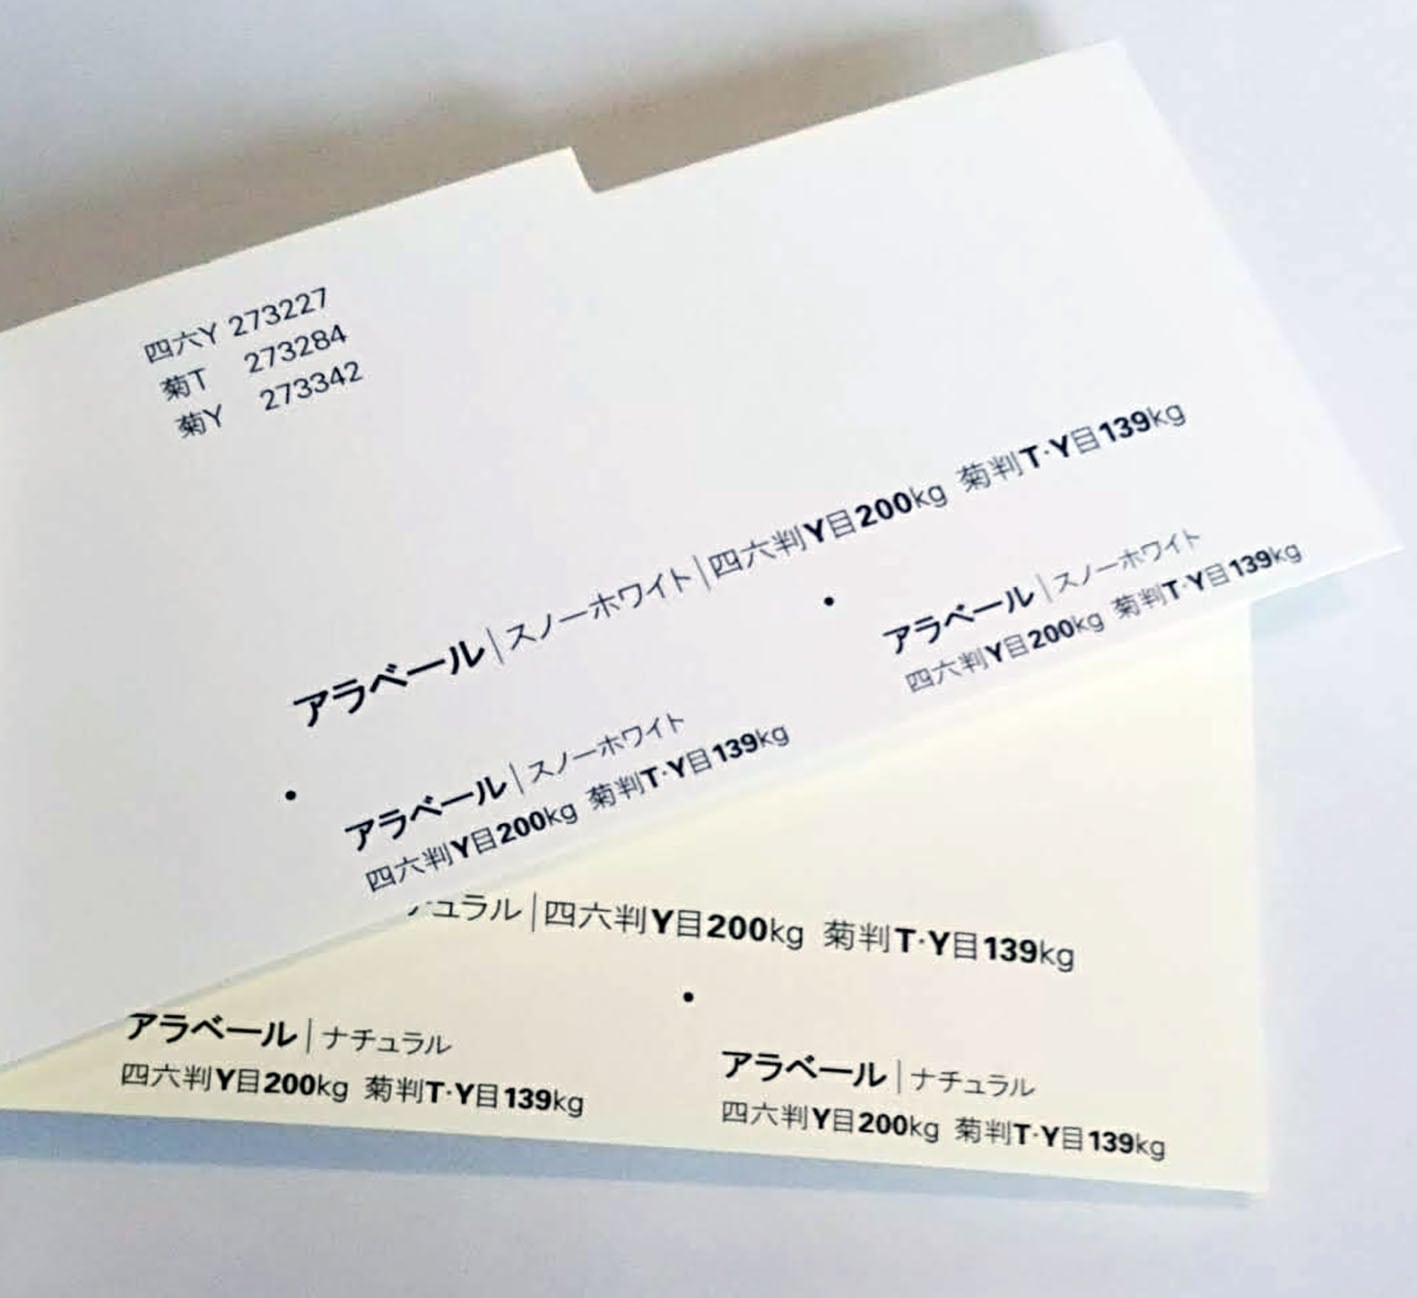 四六Y 273227
菊T 273284
菊Y 273342
アラベール|スノーホワイト|四六判Y目200kg 菊判T·Y目139kg
アラベール|スノーホワイト
四六判Y目200kg 菊判T·Y目139kg
アラベール|スノーホワイト
四六判Y目200kg 菊判T·Y目139kg
ュラル|四六判Y目200kg 菊判T·Y目139kg
アラベール|ナチュラル
四六判Y目200kg 菊判T·Y目139kg
アラベール|ナチュラル
四六判Y目200kg 菊判T·Y目139kg